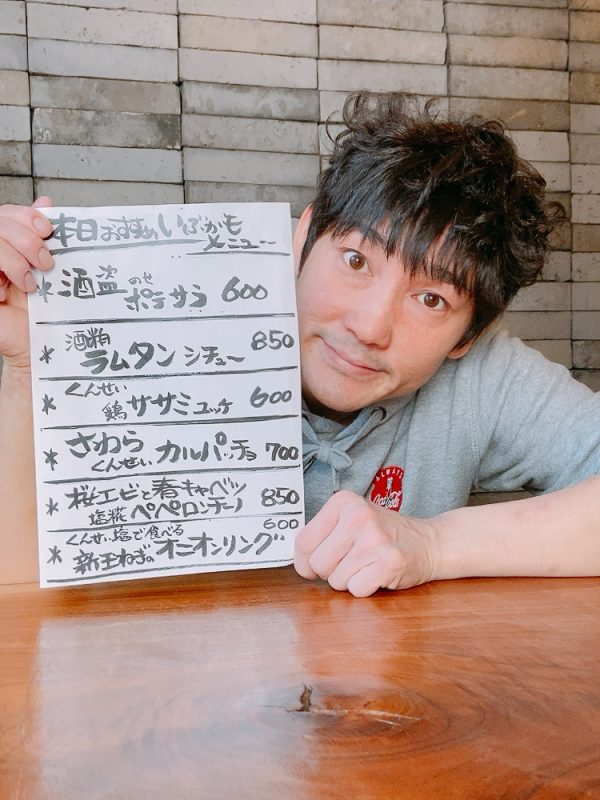 本日おすすめいぶかも
メニュー
* 酒盗のせ
ポテサラ 600
* 酒粕
ラムタンシチュー 850
* くんせい
鶏ササミユッケ 600
* さわら
くんせいカルパッチョ 700
* 桜エビと春キャベツ
塩糀ペペロンチーノ 850
くんせい塩で食べる 600
* 新玉ねぎのオニオンリング
ALWAYS
Coca-Cola